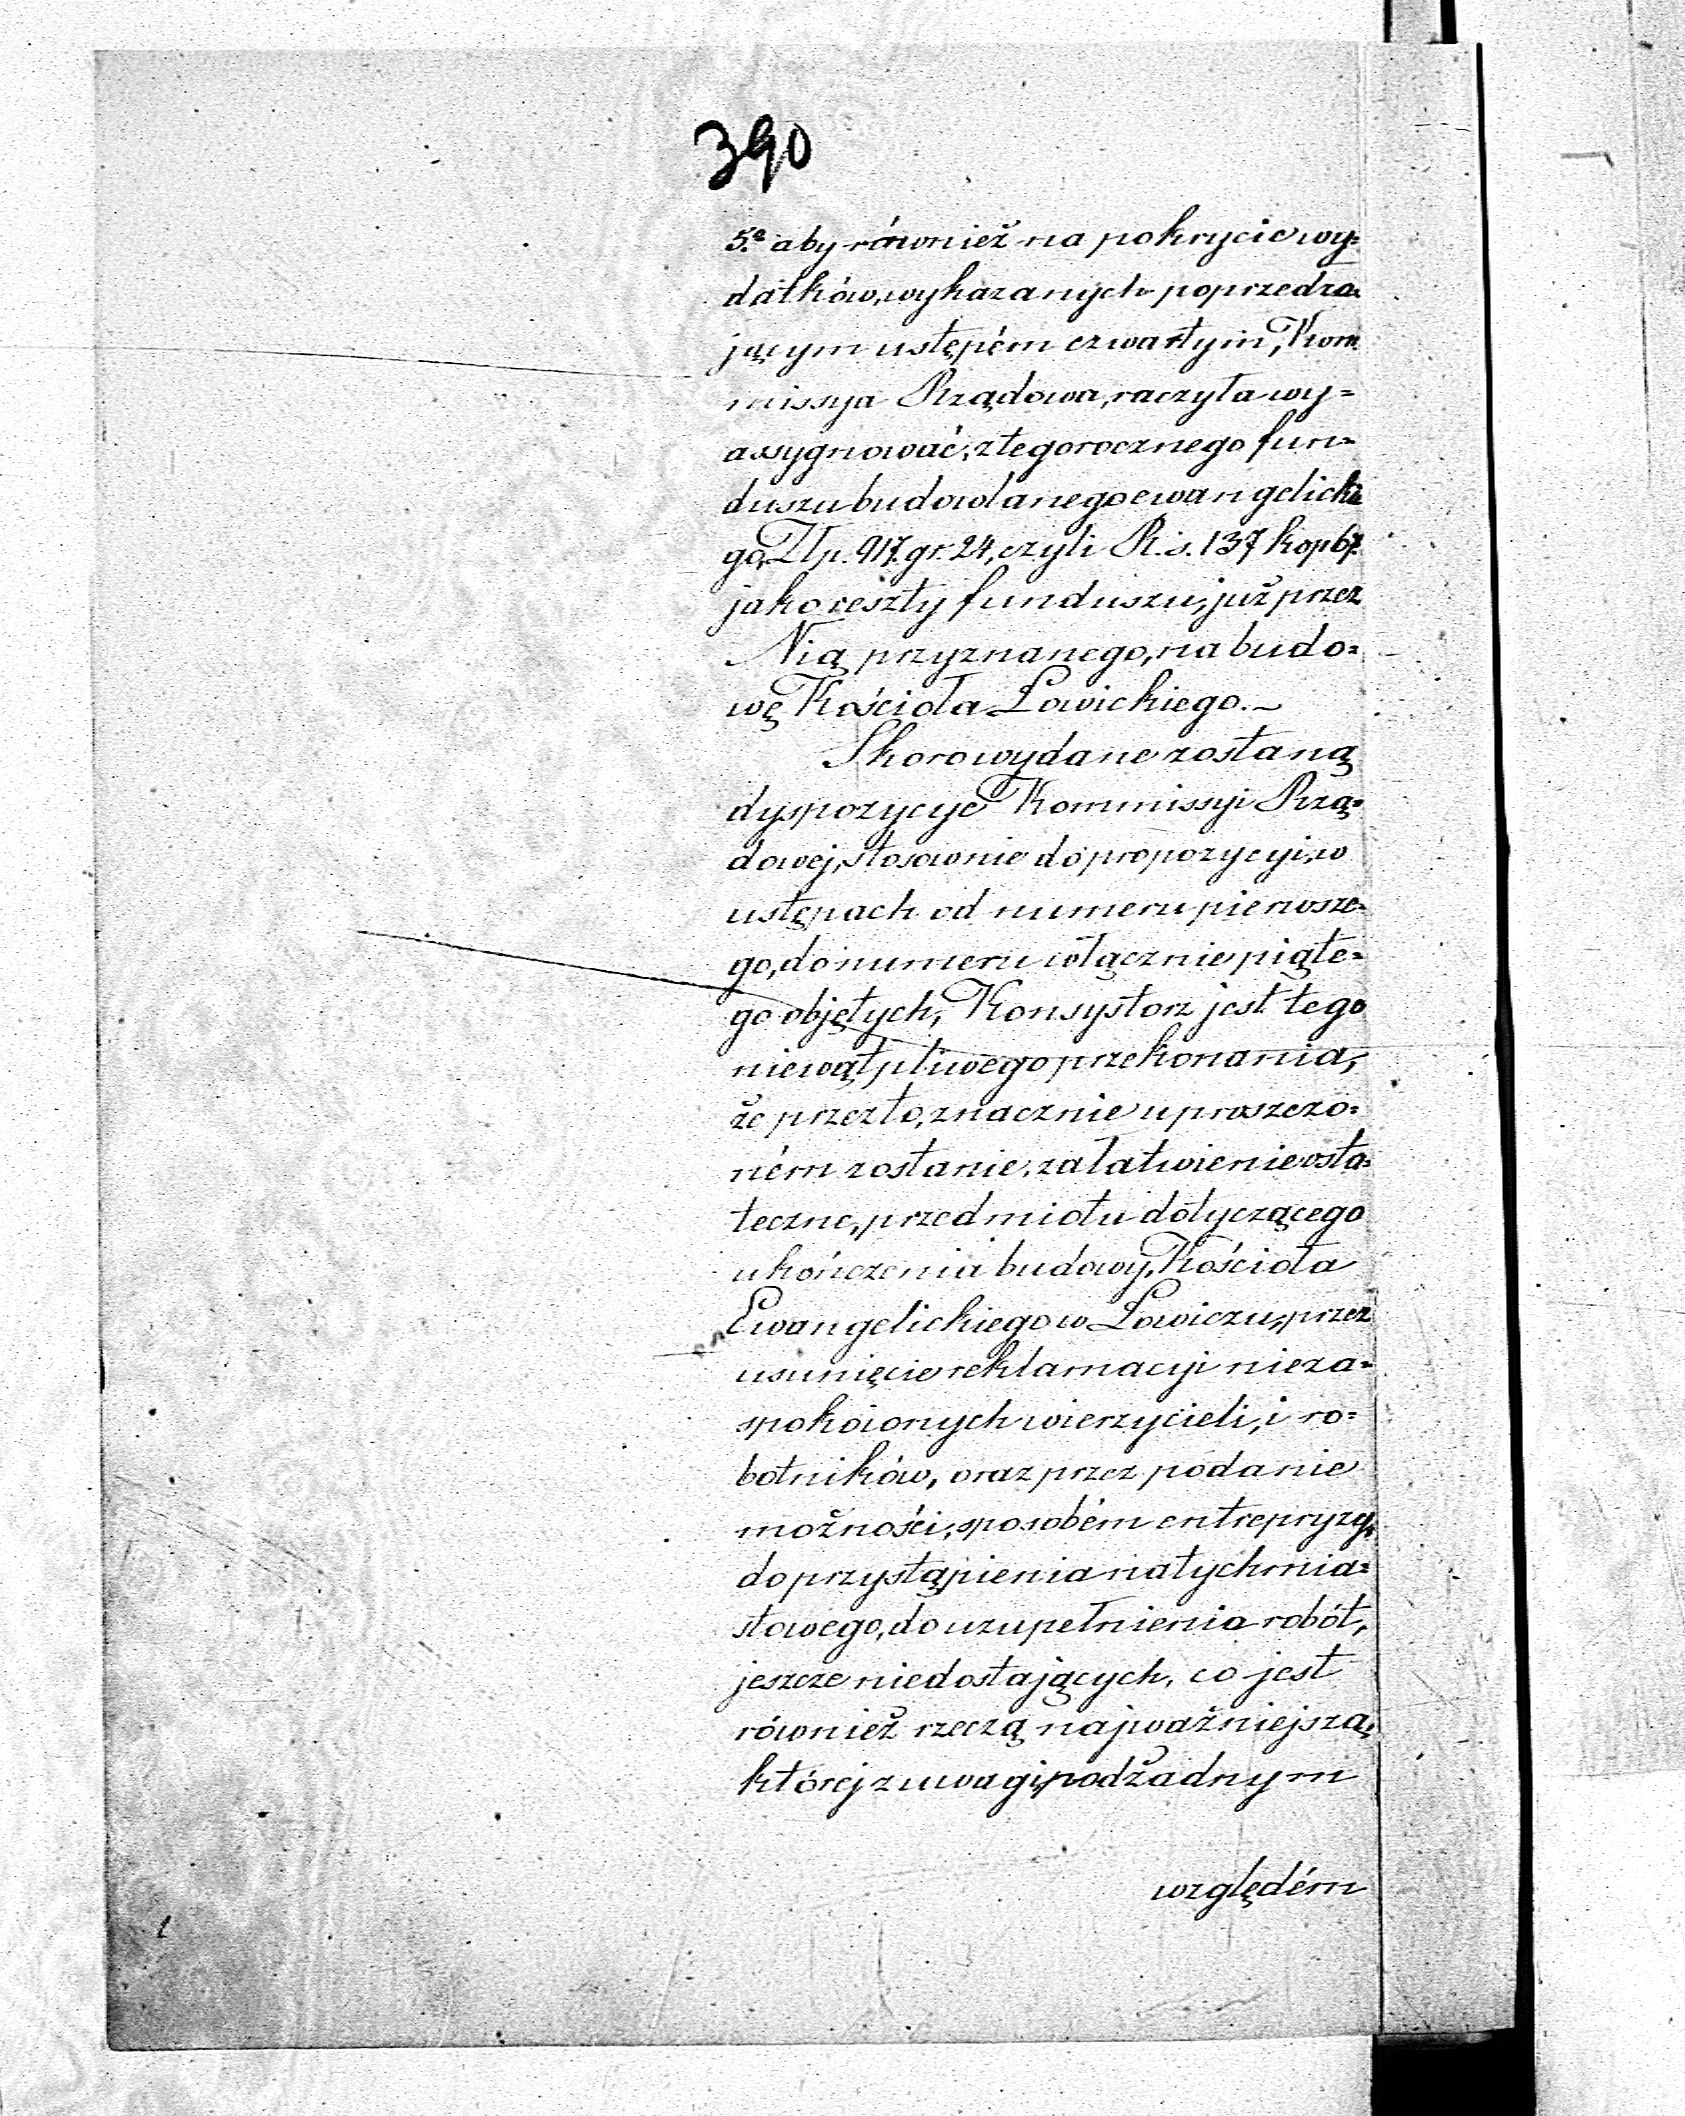 390
5.º aby również na pokrycie wy=
datków, wykazanych poprzedza=
jącym ustępém czwartym, Kom
missya Rządowa, raczyła wy=
assygnować, z tegorocznego fun=
duszu budowlanego ewangelickie
go, Złp. 917. gr. 24, czyli R. s. 137 kop 67.
jako reszty funduszu, już przez
Nią przyznanego, na budo=
wę Kościoła Łowickiego. ~
Skoro wydane zostaną
dyspozycye Kommissyi Rzą=
dowej, stosownie do propozycyi, w
ustępach od numeru pierwsze=
go, do numeru włącznie piąte=
go objętych, Konsystorz jest tego
niewątpliwego przekonania,
że przezto, znacznie uproszczo=
ném zostanie, załatwienie osta=
teczne, przedmiotu dotyczącego
ukończenia budowy, Kościoła
Ewangelickiego w Łowiczu, przez
usunięcie reklamacyi nieza=
spokoionych wierzycieli, i ro=
botników, oraz przez podanie
możności, sposobém entrepryzy,
do przystąpienia natychmia=
stowego, do uzupełnienia robót,
jeszcze niedostających, co jest
również rzeczą najważniejszą,
której z uwagi, pod żadnym
względém